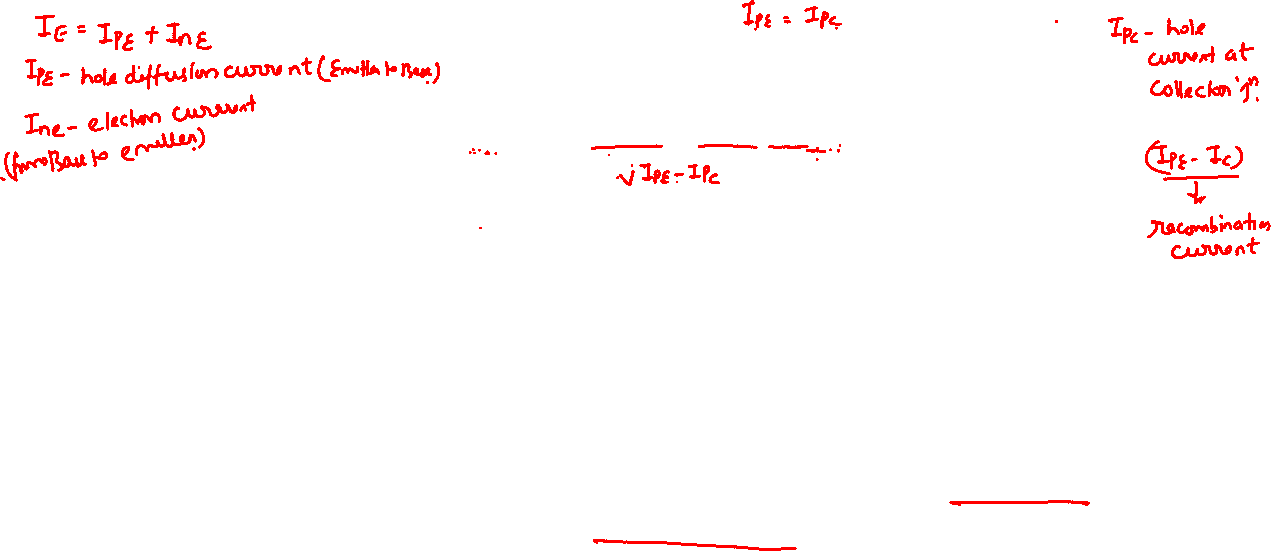 I_E = I_PE + I_nE
I_PE - hole diffusion current (Emitter to Base)
I_ne - electron current
(from Base to emitter)
I_PE = I_PC
I_PE - I_PC
I_PC - hole
current at
collector jn.
(I_PE - I_C)
recombination
current